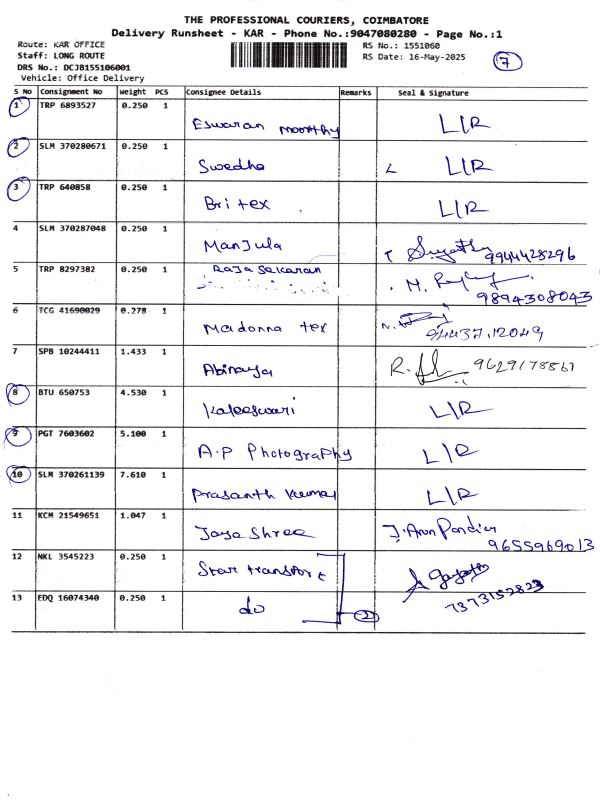 THE PROFESSIONAL COURIERS, COIMBATORE
Delivery Runsheet - KAR - Phone No.:9047080280 - Page No.:1
Route: KAR OFFICE
RS No.: 1551060
Staff: LONG ROUTE
RS Date: 16-May-2025
7
DRS No.: DCJ8155106001
Vehicle: Office Delivery
S NO Consignment No Weight PCS Consignee Details Remarks Seal & Signature
1 TRP 6893527 0.250 1 Eswaran moorthy L/R
2 SLM 370280671 0.250 1 Swedha L/R
3 TRP 640858 0.250 1 Britex L/R
4 SLM 370287048 0.250 1 Manjula 9944428296
5 TRP 8297382 0.250 1 Raja Sekaran 9894308043
6 TCG 41690029 0.278 1 Madonna tex 94437,12049
7 SPB 10244411 1.433 1 Abinaya 9629178867
8 BTU 650753 4.530 1 Kaleeswari L/R
9 PGT 7603602 5.100 1 A.P Photography L/R
10 SLM 370261139 7.610 1 Prasanth Kumar L/R
11 KCM 21549651 1.047 1 Jaya Shree J. Arun Pandian 9655969013
12 NKL 3545223 0.250 1 Star transport 7373152823
13 EDQ 16074340 0.250 1 do -2-